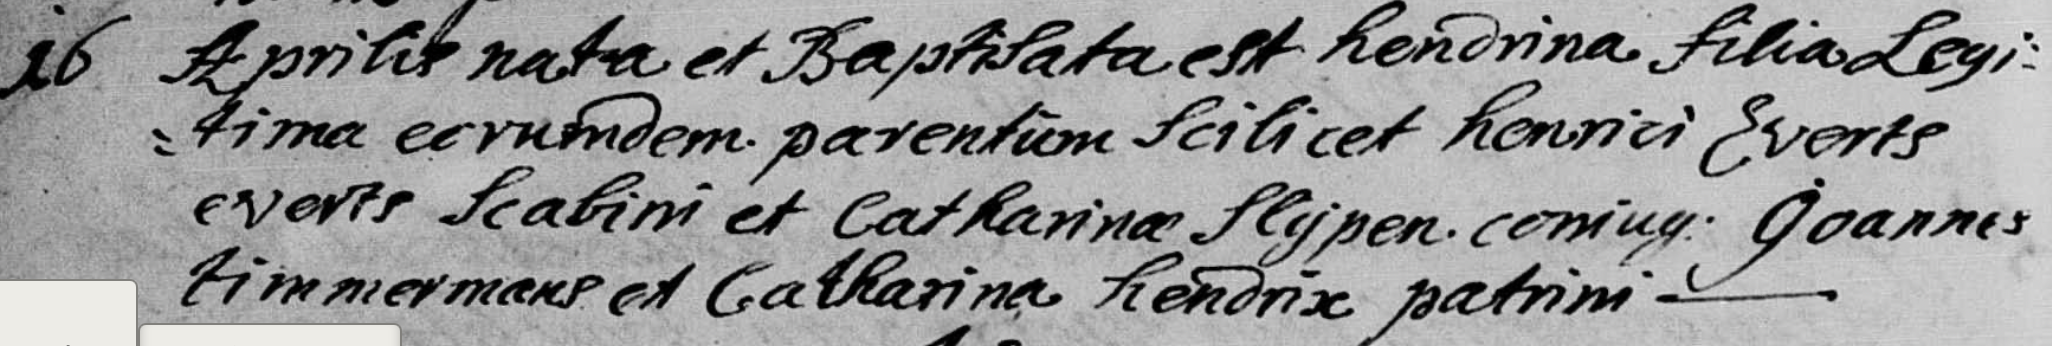 16 Aprilis nata et Baptisata est hendrina filia Legi:
:tima eorumdem parentum scilicet henrici Everts
everts scabini et Catharinæ slijpen. coniug: Joannes
timmermans et Catharina hendrix patrini